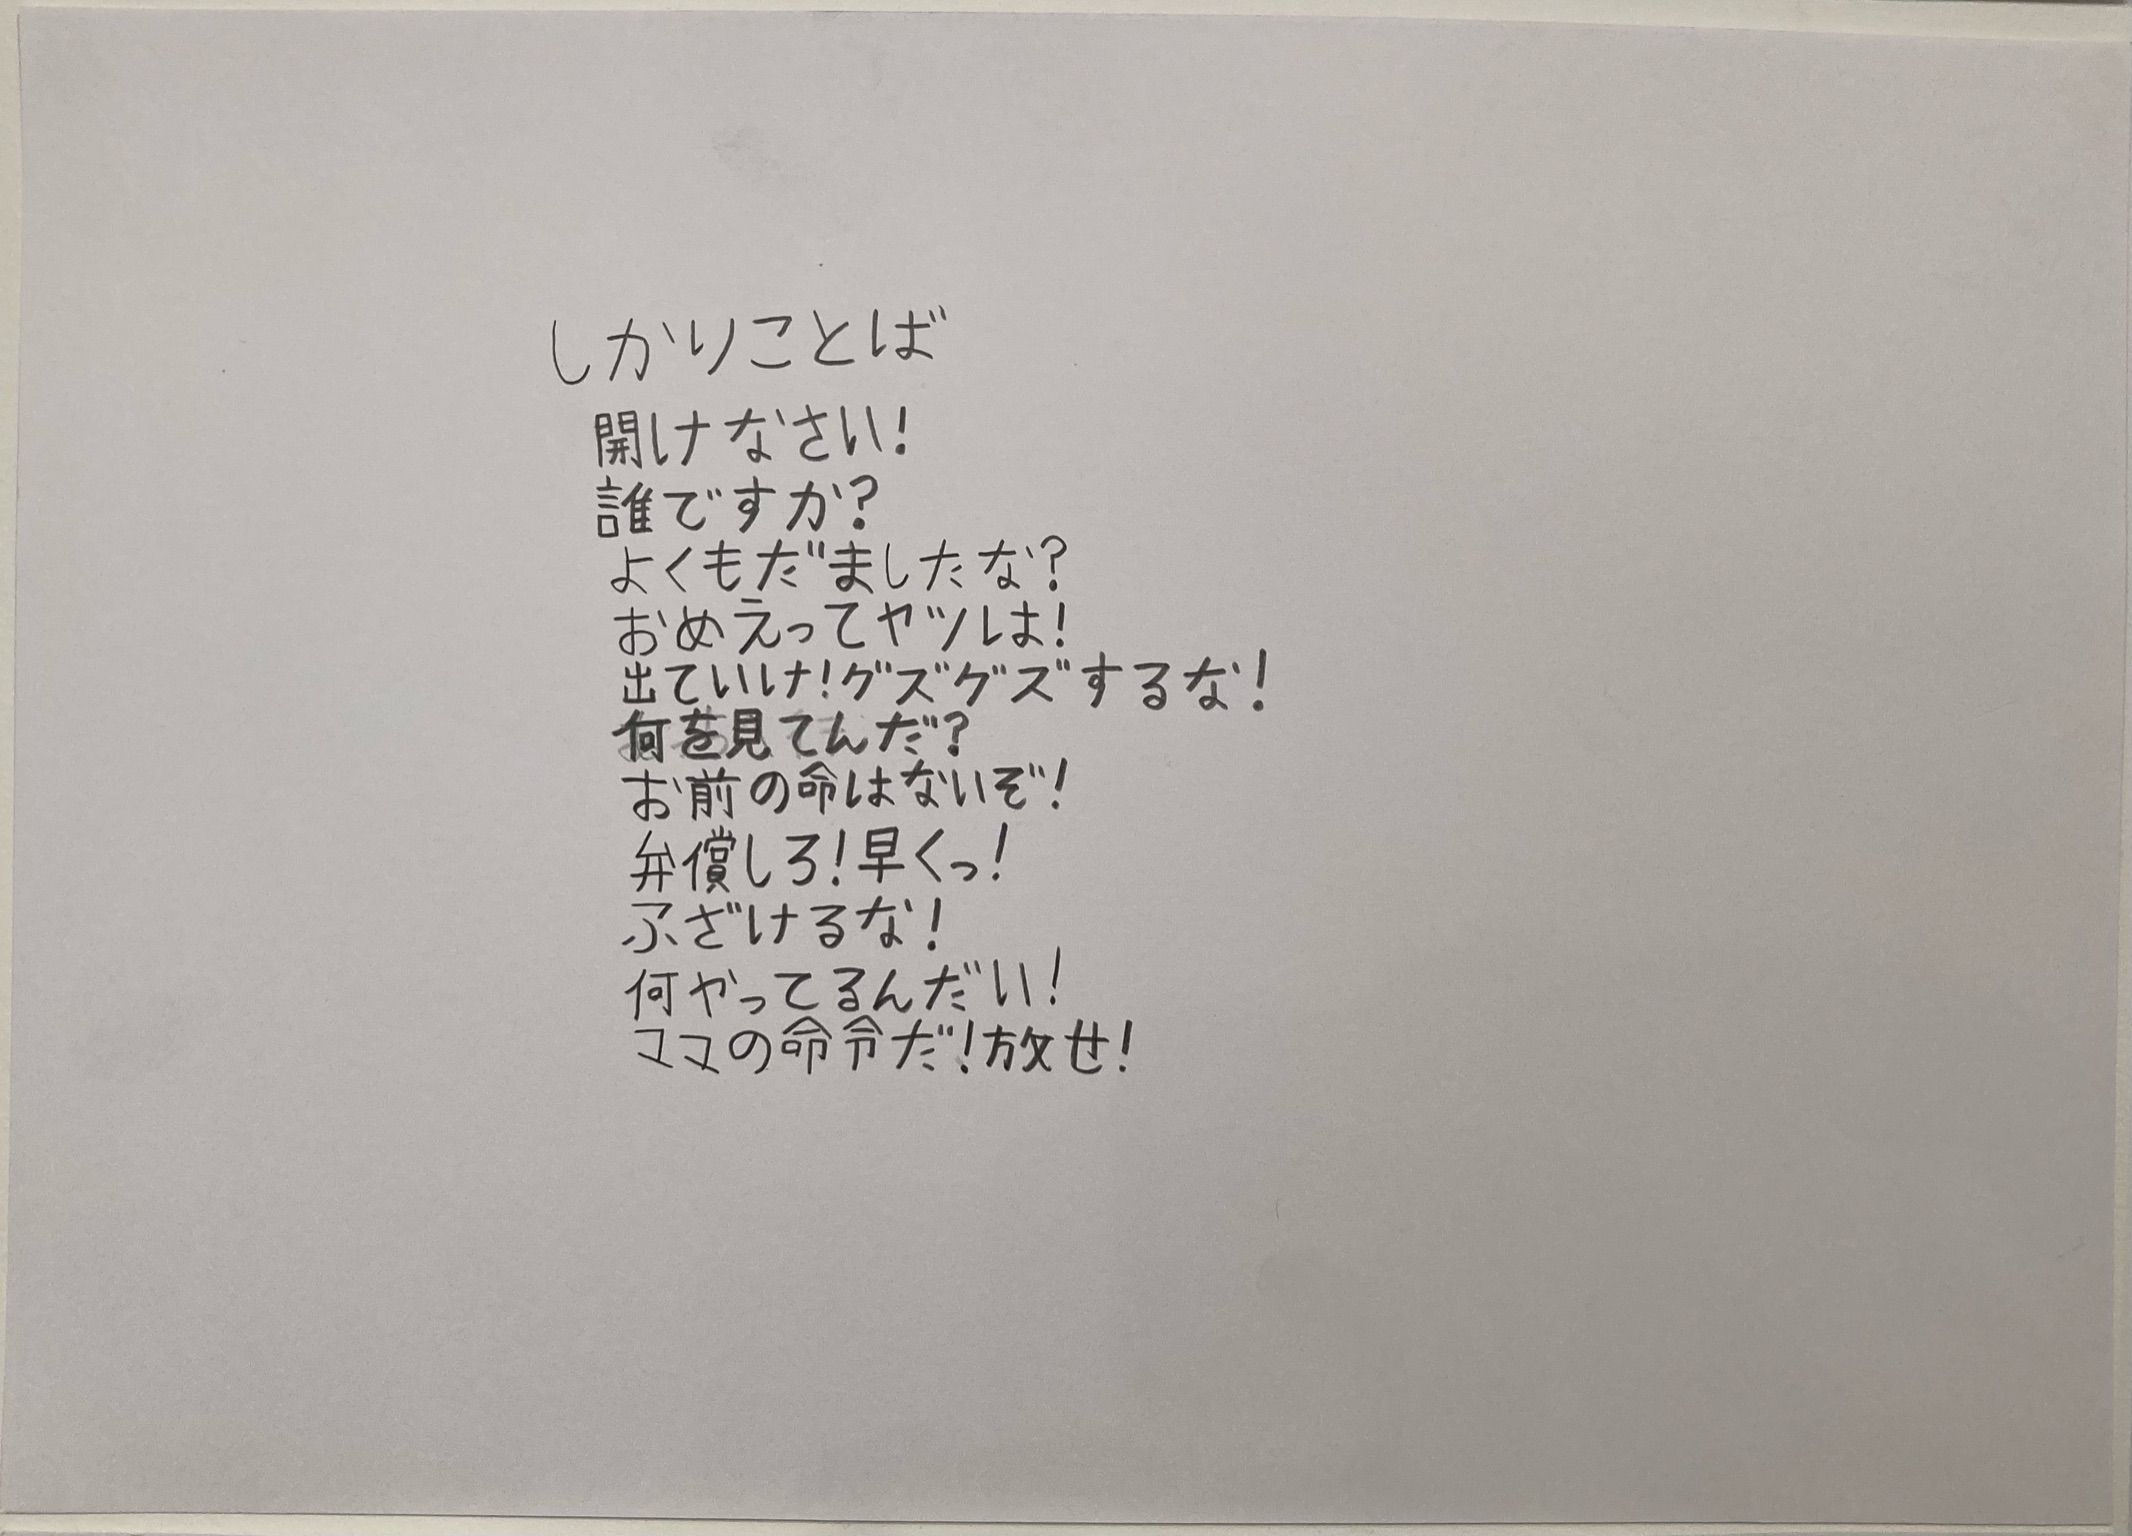 しかりことば
開けなさい!
誰ですか?
よくもだましたな?
おめえってヤツは!
出ていけ!グズグズするな!
何を見てんだ?
お前の命はないぞ!
弁償しろ!早くっ!
ふざけるな!
何やってるんだい!
ママの命令だ!放せ!